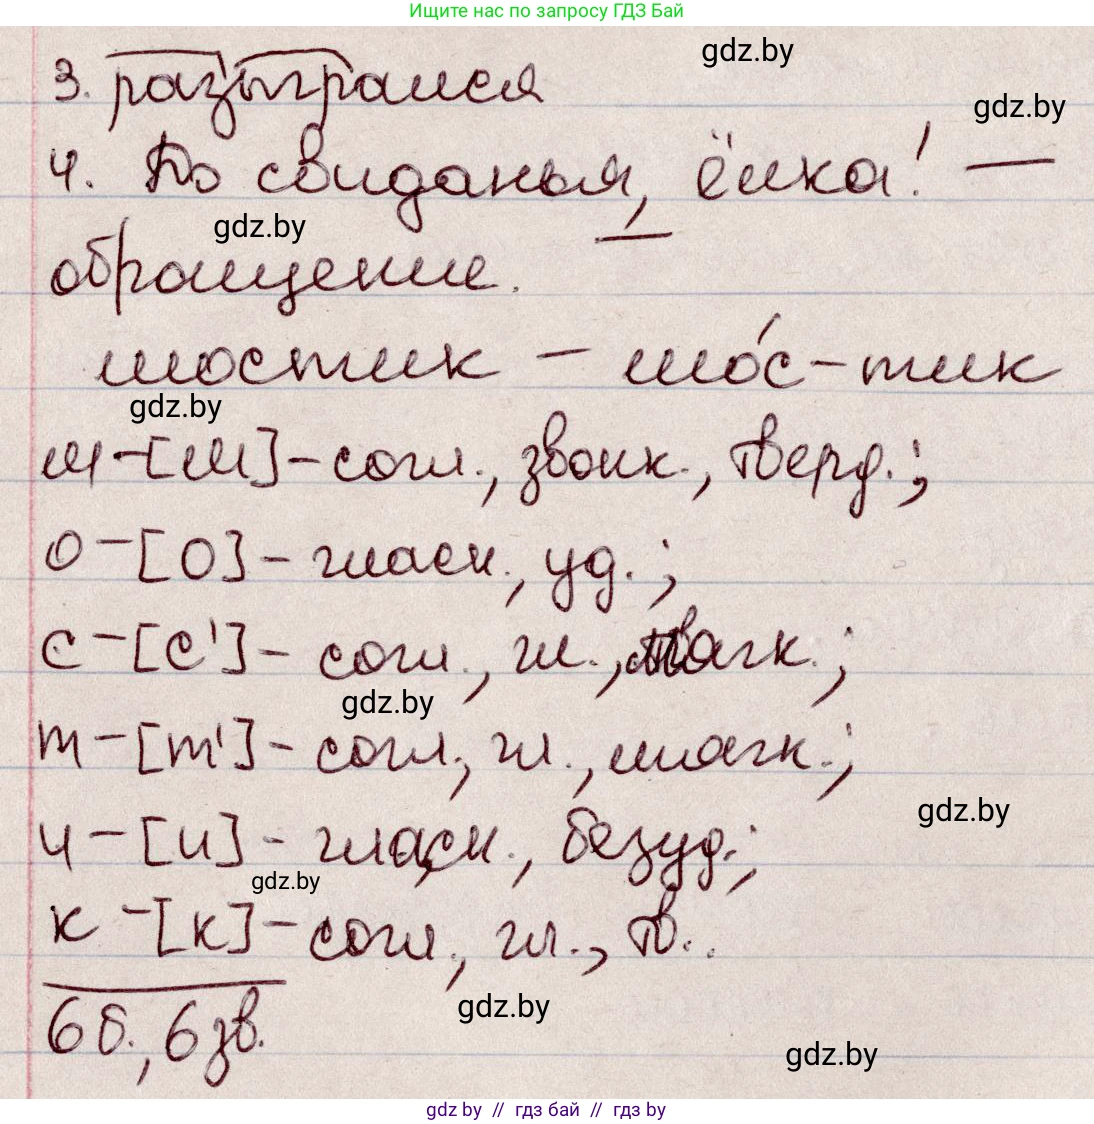 Ищите нас по запросу ГДЗ Бай
gdz.by
3. разыгрался
gdz.by
4. До свиданья, ёлка! —
gdz.by
обращение.
мостик – мо́с-тик
gdz.by
м – [м] – согл., звонк., тверд.;
о – [о] – гласн., уд.;
с – [с'] – согл., гл., мягк.;
gdz.by
т – [т'] – согл., гл., мягк.;
и – [и] – гласн., безуд.;
gdz.by
gdz.by
к – [к] – согл., гл., тв..
gdz.by
6 б., 6 зв.
gdz.by
gdz.by // гдз бай // гдз by